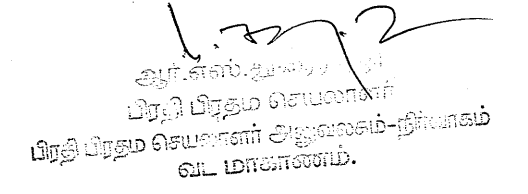 ஆர்.எஸ்.
பிரதி பிரதம செயலாளர்
பிரதி பிரதம செயலாளர் அலுவலகம்-நிர்வாகம்
வட மாகாணம்.